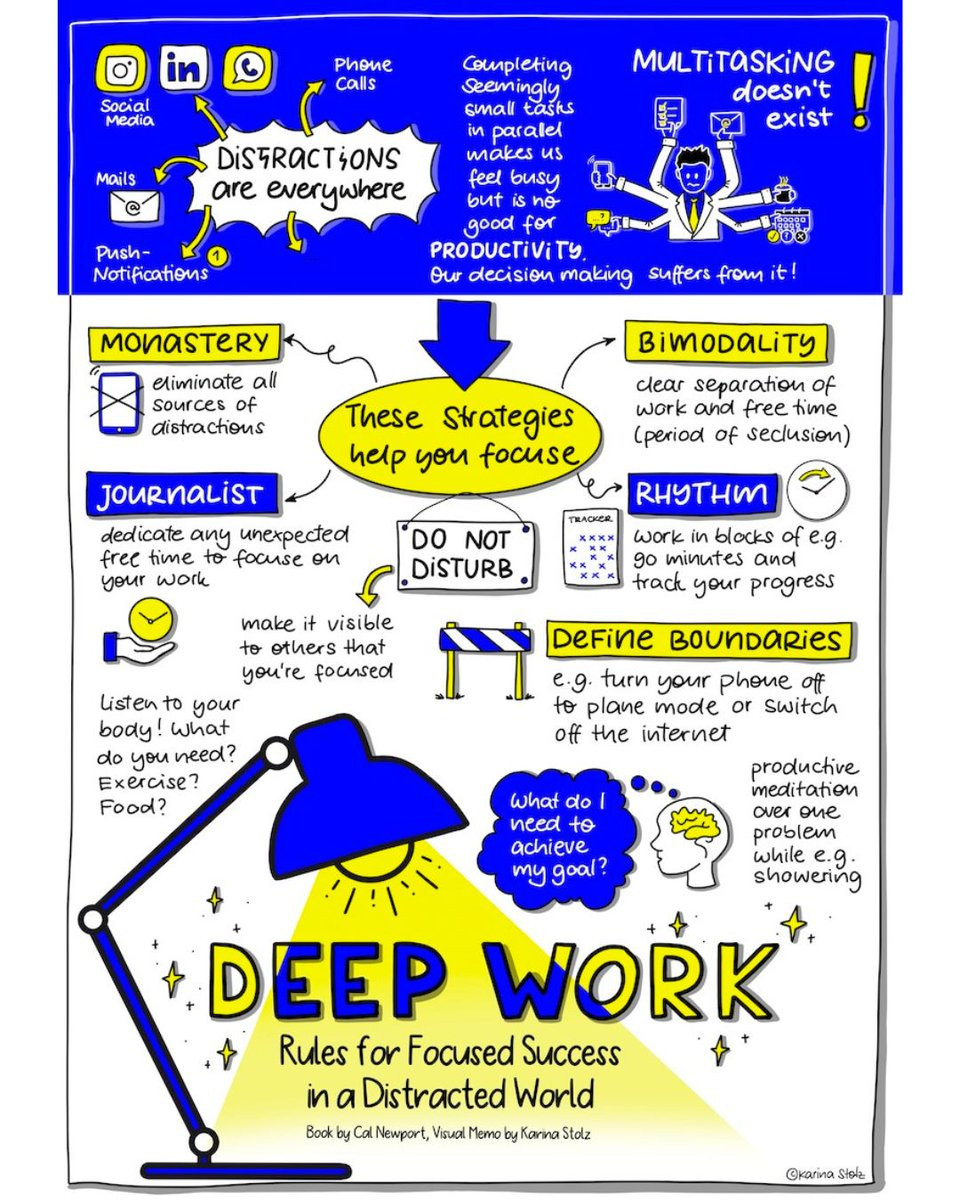 Social
Media
in
Phone
Calls
DISTRACTIONS
are everywhere
Mails
@
Push-
Notifications
1
Completing
Seemingly
small tasks
in parallel
makes us
feel busy
but is no
good for
PRODUCTIVITY.
Our decision making suffers from it!
MULTITASKING
doesn't
exist
!
...?
These Strategies
help you focuse
MONASTERY
eliminate all
sources of
distractions
BIMODALITY
clear separation of
work and free time
(period of seclusion)
JOURNALIST
dedicate any unexpected
free time to focuse on
your work
RHYTHM
TRACKER
work in blocks of e.g.
90 minutes and
track your progress
DO NOT
DISTURB
make it visible
to others that
you're focused
DEFINE BOUNDARIES
e.g. turn your phone off
to plane mode or switch
off the internet
Listen to your
body! What
do you need?
Exercise?
Food?
What do I
need to
achieve
my goal?
productive
meditation
over one
problem
while e.g.
showering
DEEP WORK
Rules for Focused Success
in a Distracted World
Book by Cal Newport, Visual Memo by Karina Stolz
©Karina Stolz